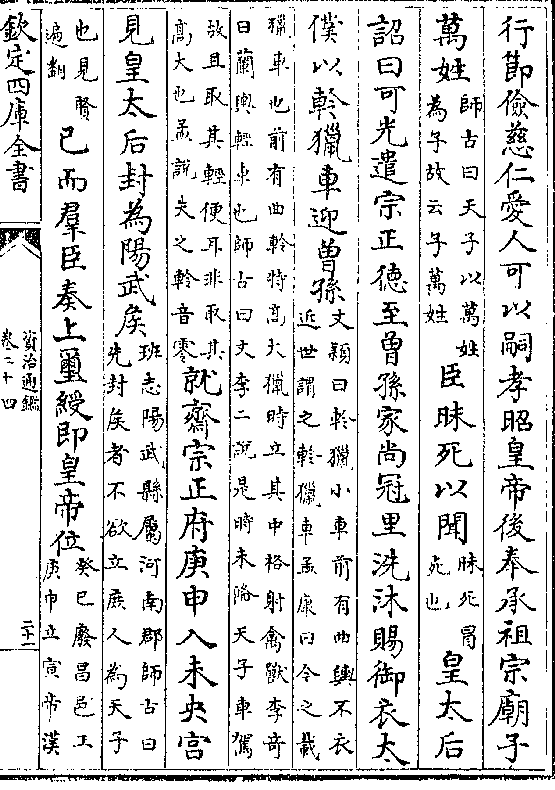 行節儉慈仁愛人可以嗣孝昭皇帝後奉承祖宗廟子
萬姓師古曰天子以萬姓為子故云子萬姓臣昧死以聞昧死冒死也皇太后
詔曰可光遣宗正德至曾孫家尚冠里洗沐賜御衣太
僕以軨獵車迎曽孫文穎曰軨獵小車前有曲輿不衣近世謂之軨獵車孟康曰今之載
獵車也前有曲軨特高大獵時立其中格射禽獸李奇曰蘭輿輕車也師古曰文李二説是時未備天子車駕
故且取其輕便耳非取其高大也孟説失之軨音零就齋宗正府庚申入未央宫
見皇太后封為陽武侯班志陽武縣屬河南郡師古曰先封侯者不欲立庶人為天子
也見賢遍翻已而羣臣奏上璽綬即皇帝位癸巳廢昌邑王庚申立宣帝漢
欽定四庫全書
資治通鑑
卷二十四
二十一